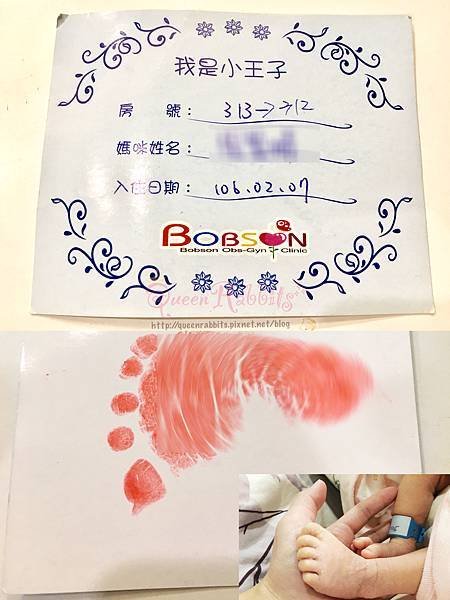 我是小王子
房 號： 313→712
媽咪姓名：
入住日期： 106.02.07
BOBSON
Bobson Obs-Gyn Clinic
Queen Rabbits
http://queenrabbits.pixnet.net/blog